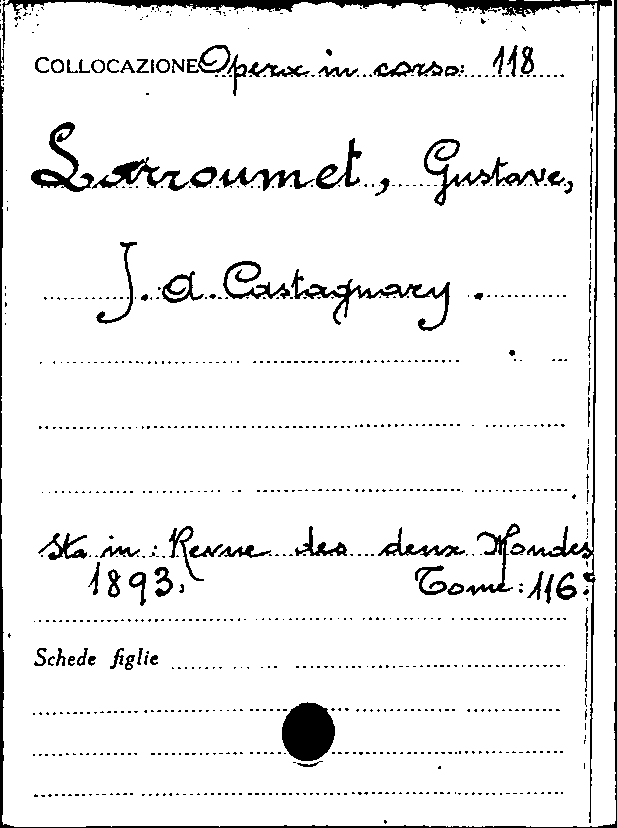 COLLOCAZIONE Opera in corso: 118
Larroumet, Gustave,
J. A. Castagnary.
Sta in: Revue des deux Mondes
1893. Tome: 116º
Schede figlie